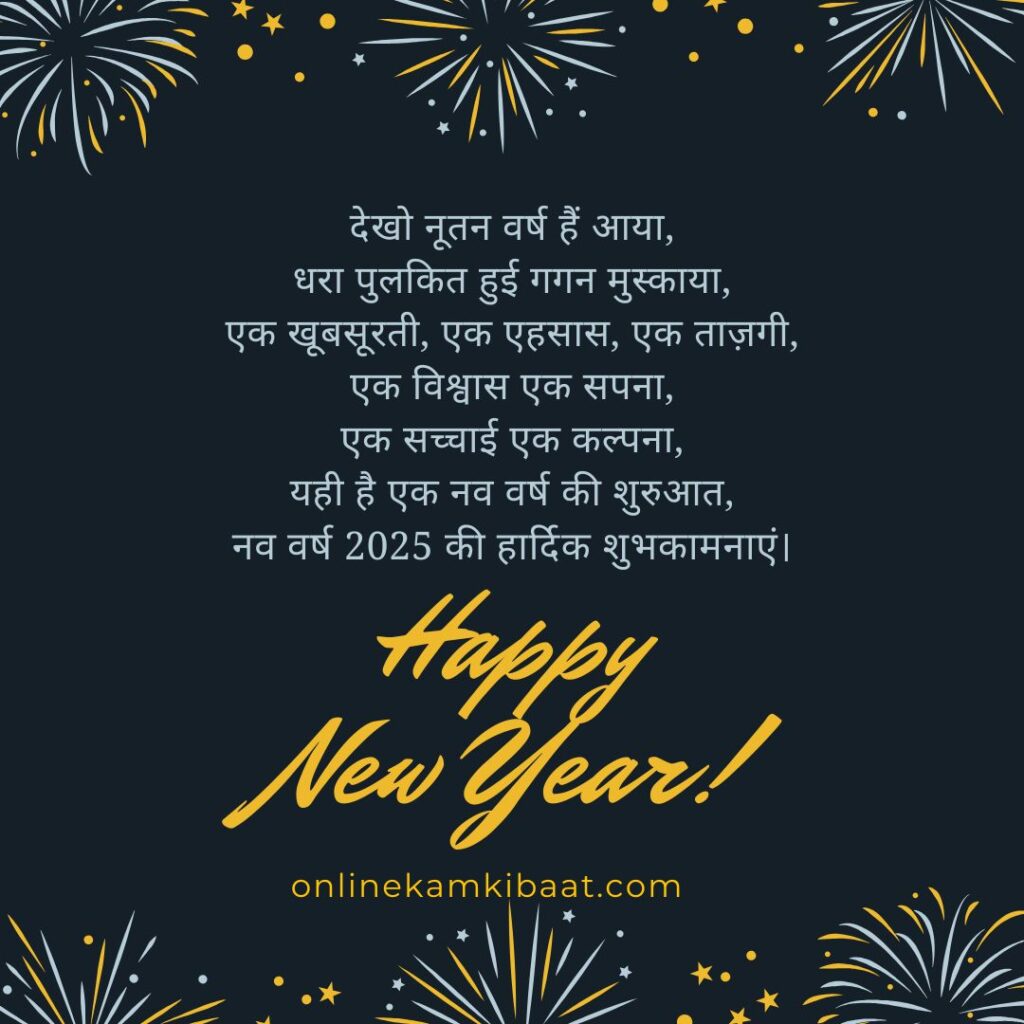 देखो नूतन वर्ष हैं आया,
धरा पुलकित हुई गगन मुस्काया,
एक खूबसूरती, एक एहसास, एक ताज़गी,
एक विश्वास एक सपना,
एक सच्चाई एक कल्पना,
यही है एक नव वर्ष की शुरुआत,
नव वर्ष 2025 की हार्दिक शुभकामनाएं।
Happy
New Year!
onlinekamkibaat.com